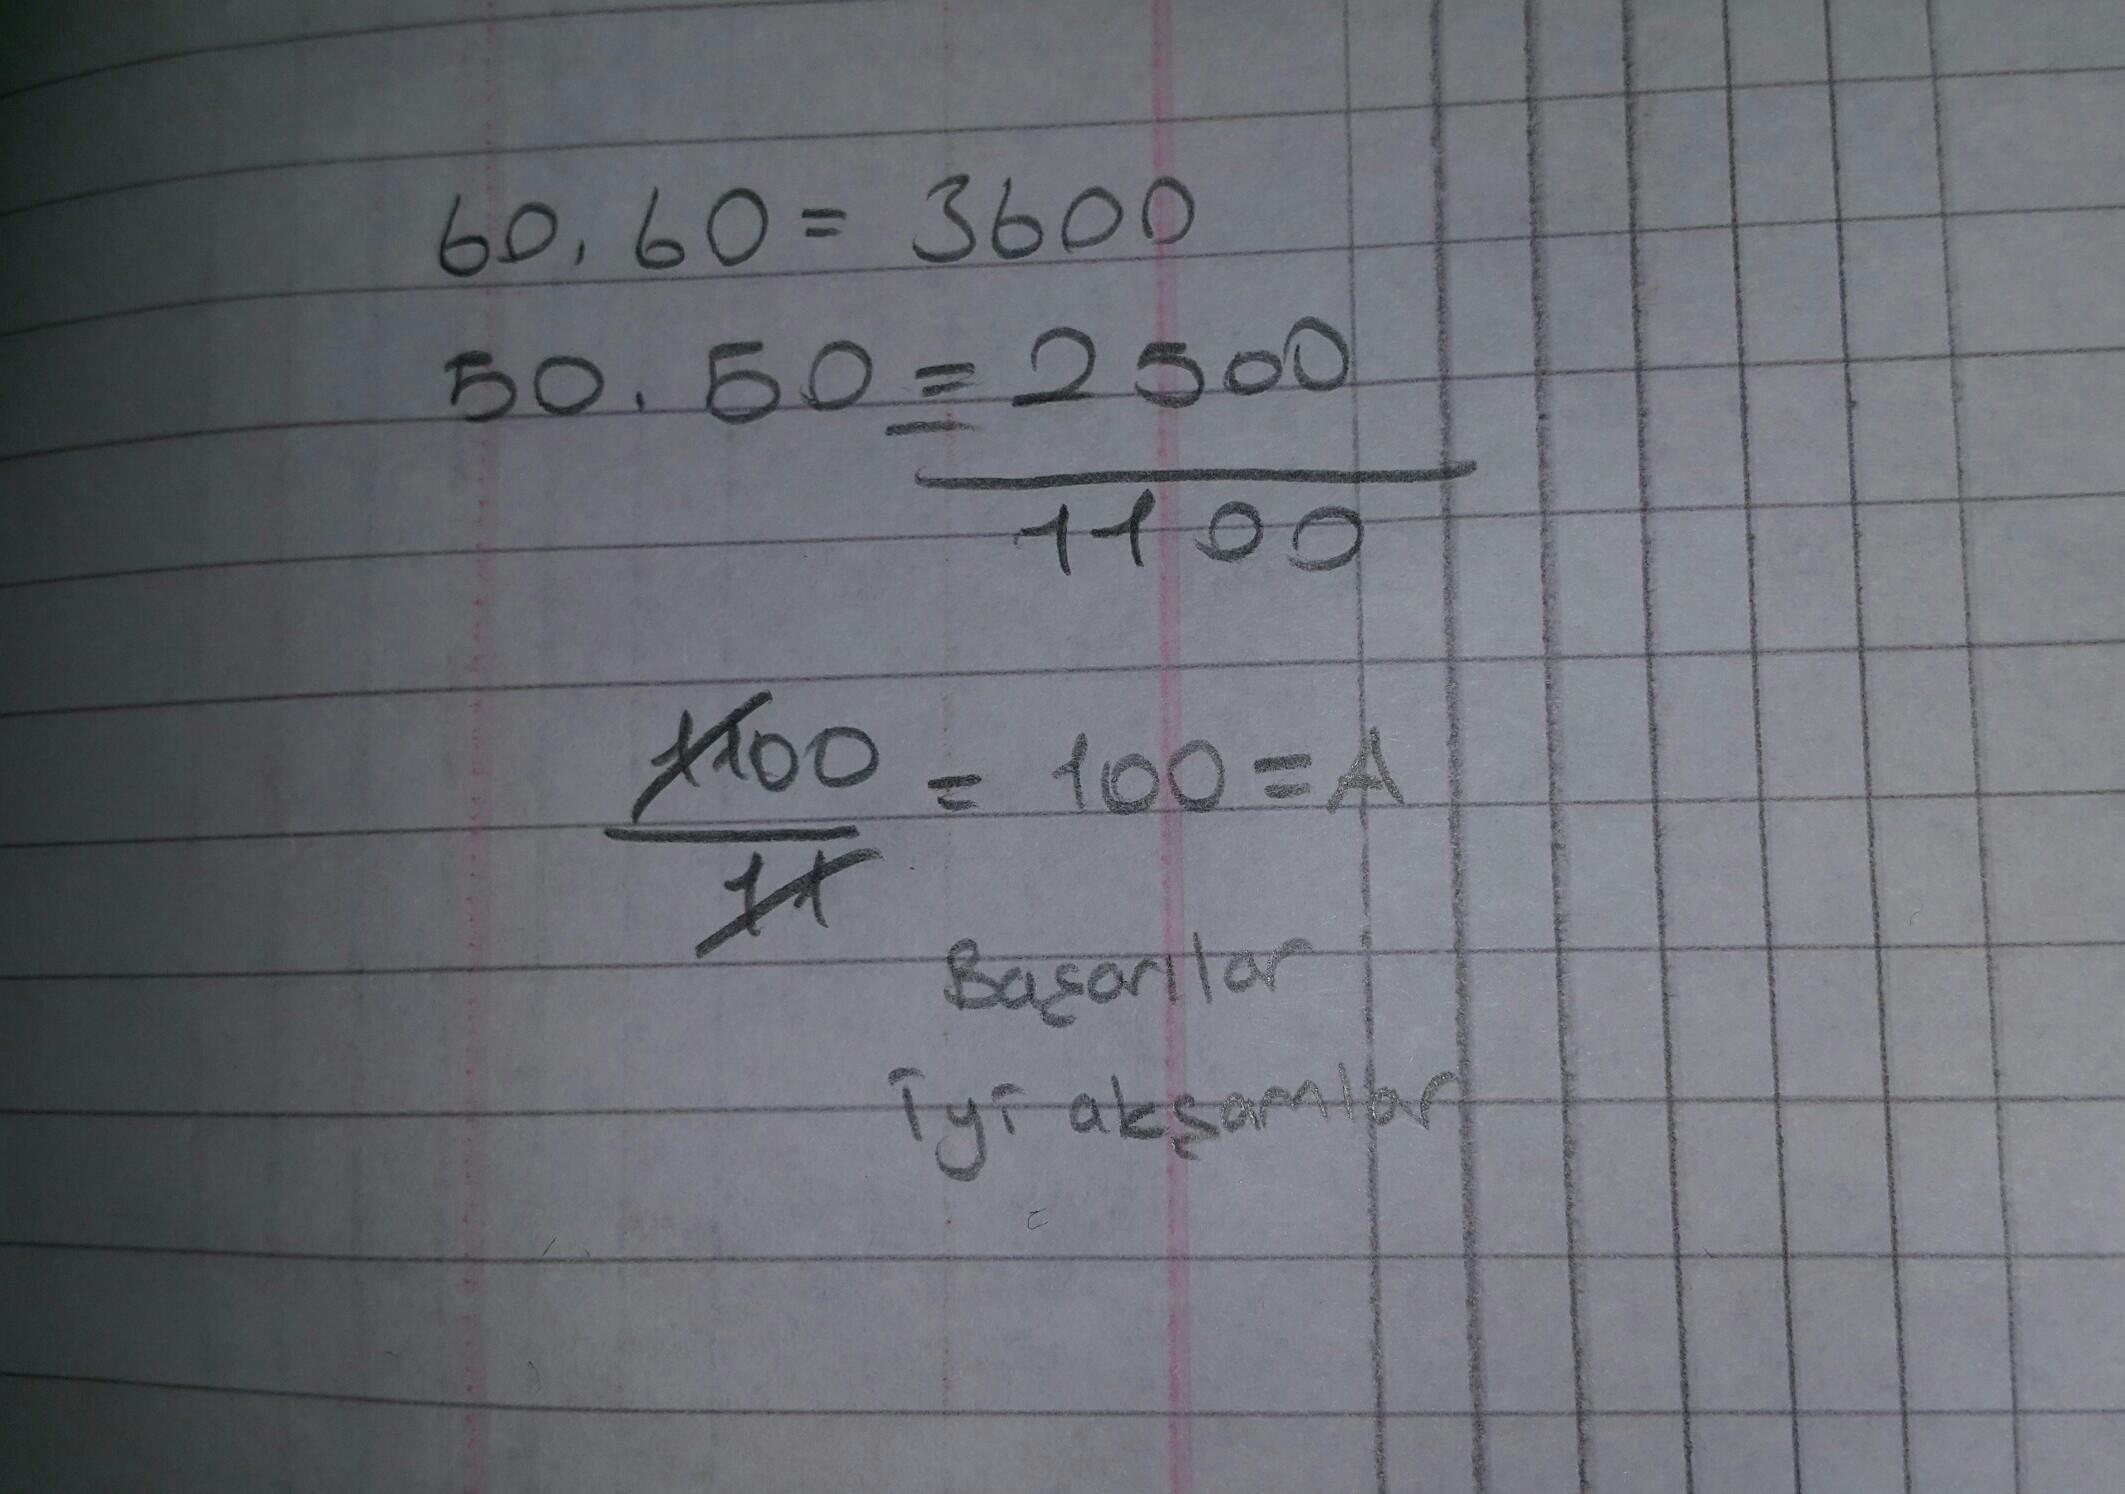 60.60 = 3600
50.50 = 2500
1100
1100
11 = 100 = A
Başarılar
iyi akşamlar